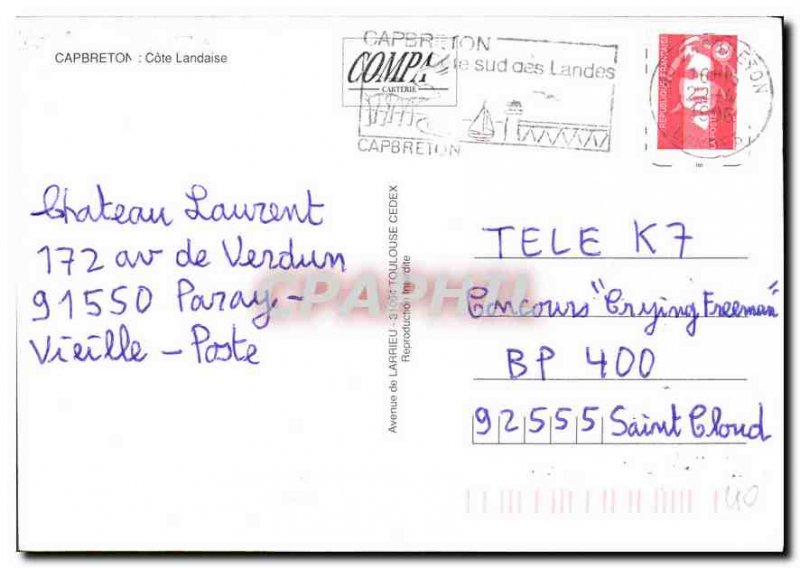 CAPBRETON : Côte Landaise
CAPBRETON
COMPA
CARTERIE
le sud des Landes
CAPBRETON
REPUBLIQUE FRANÇAISE
Chateau Laurent
172 av de Verdun
91550 Paray-
Vieille-Poste
Avenue de LARRIEU - 31094 TOULOUSE CEDEX
Reproduction Interdite
CPAPHIL
TELE K7
Concours "Crying Freeman"
BP 400
92555 Saint Cloud
40